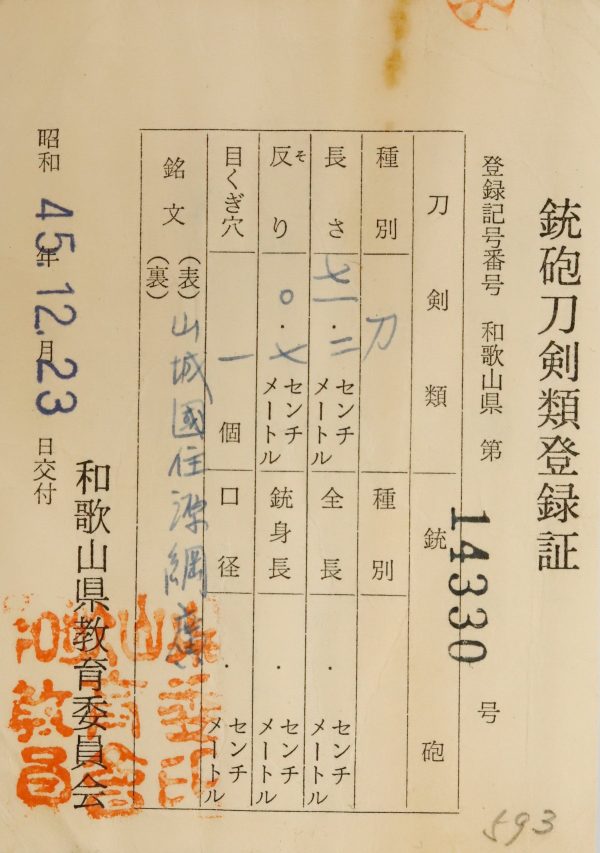 銃砲刀剣類登録証
登録記号番号 和歌山県 第 14330 号
刀剣類 銃砲
種別 刀 種別
長さ 七一.二 センチメートル 全長 . センチメートル
反り そ 〇.七 センチメートル 銃身長 . センチメートル
目くぎ穴 一 個 口径 . センチメートル
銘文 (表) 山城國住源綱廣
(裏)
昭和 45年 12月 23日交付
和歌山県教育委員会
593